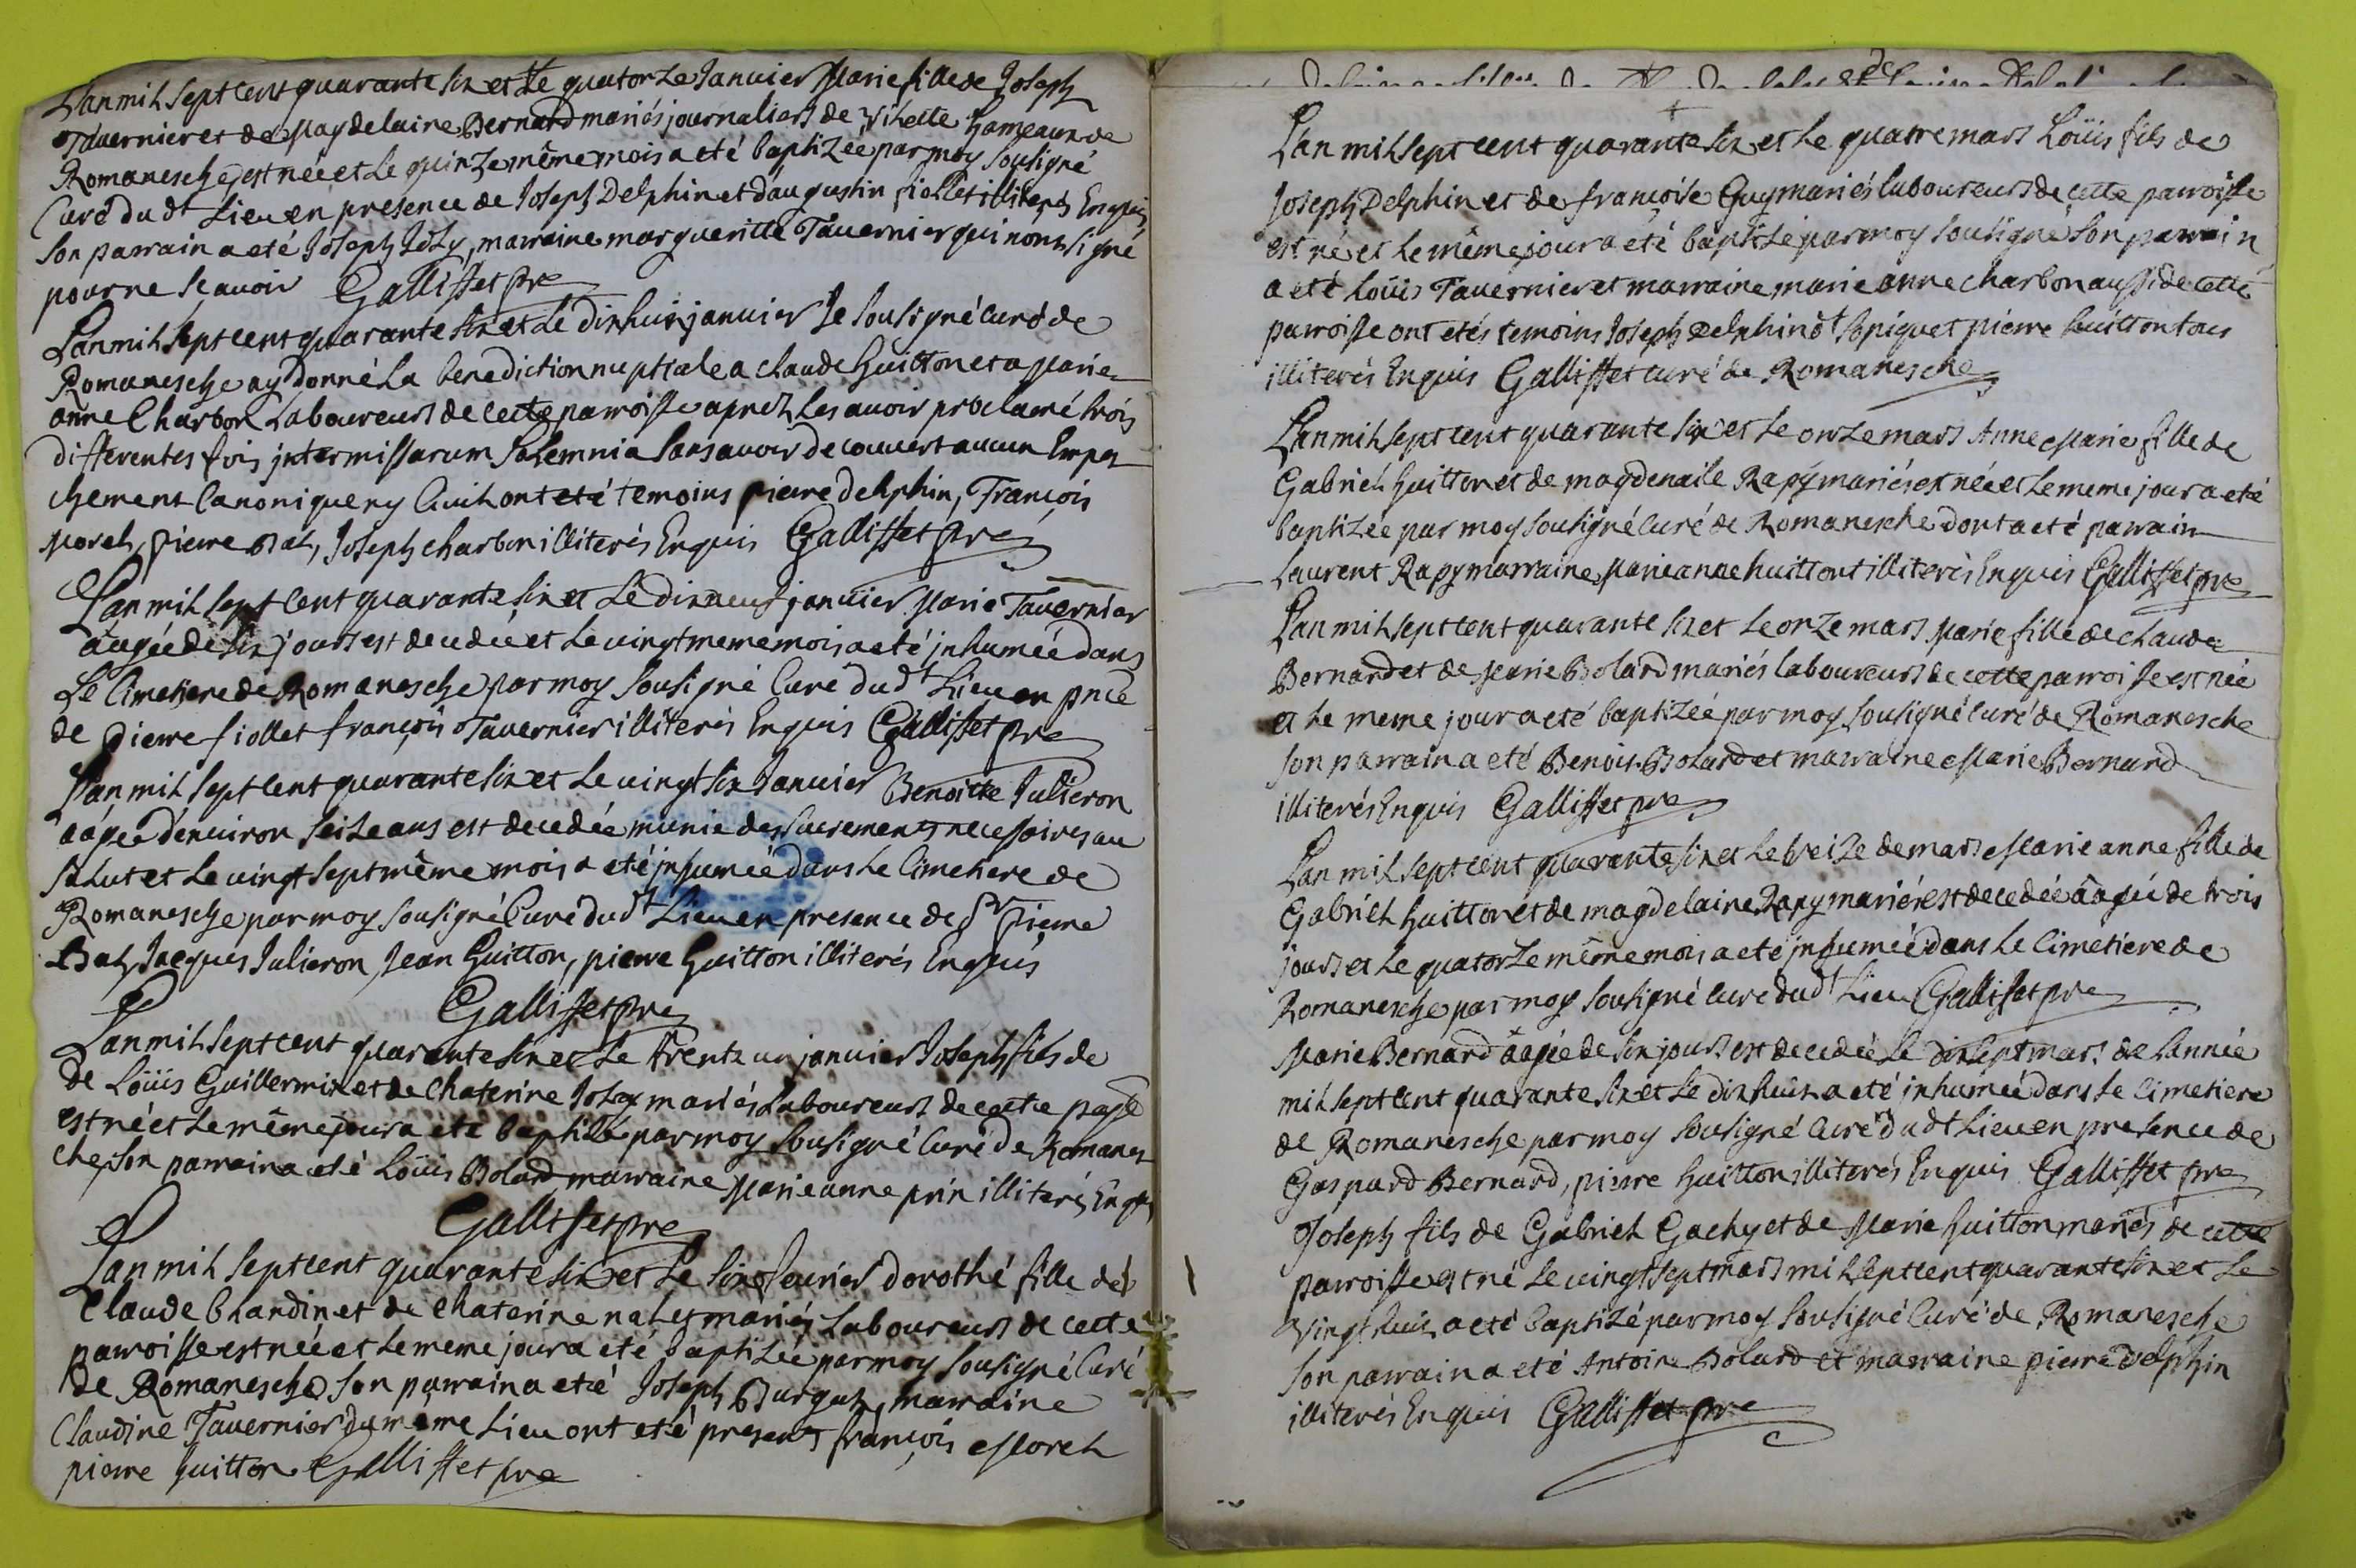 Lan mil sept cent quarante six et le quatorze Januier Marie fille de Joseph
Tauernier et de Magdelaine Bernard mariés journaliers de hameaux de
Romanesche est née et le quinze même mois a eté baptizée par moy sousigné
Curé dudt Lieu en presence de Joseph Delphin et d'augustin fiollet illiterés Enquis
son parrain a eté Joseph Joly, marraine margueritte Tauernier qui n'ont signé
pour ne sçauoir Galliffet pre
Lan mil sept cent quarante six et le dixhuit januier Je sousigné Curé de
Romanesche ay donné la benediction nuptiale a claude huitton et a Marie
anne Charbon Laboureurs de cette parroisse aprez les auoir proclamé trois
differentes fois jnter missarum solemnia sans auoir decouuert aucun Empe
chement Canonique ny Ciuil ont eté temoins pierre delphin, François
Morel, pierre Bal, Joseph charbon illiterés Enquis Galliffet pre
Lan mil sept cent quarante six et le dixneuf januier Marie Tauernier
âagée de six jours est decedée et le vingt meme mois a eté jnhumée dans
Le Cimetiere de Romanesche par moy sousigné Curé dudt Lieu en pnce
de pierre fiollet françois Tauernier illiterés Enquis Galliffet pre
Lan mil sept cent quarante six et le vingt six Januier Benoitte Julieron
aagée denuiron seize ans est decedée munie des sacrements necessaires au
salut et le vingt sept même mois a eté jnhumée dans le Cimetiere de
Romanesche par moy sousigné Curé dudt Lieu en presence de Sr pierre
Bal, Jacques Julieron, Jean huitton, pierre huitton illiterés Enquis
Galliffet pre
Lan mil sept cent quarante six et le trente un januier Joseph fils de
de Loüis Guillermin et de Chaterine Joly mariés Laboureurs de cette
est né et le même jour a eté baptisé par moy sousigné Curé de Romanes
che, son parrain a eté Loüis Bolard marraine Marie anne prin illiterés Enqs
Galliffet pre
Lan mil sept cent quarante six et le six feurier dorothé fille de
Claude blandin et de Chaterine nalet mariés Laboureurs de cette
parroisse est née et le meme jour a eté baptizée par moy sousigné Curé
de Romanesche son parrain a eté Joseph marraine
Claudine Tauernier du même Lieu ont eté presents françois Morel
pierre huitton Galliffet pre
Lan mil sept cent quarante six et le quatre mars Loüis fils de
Joseph Delphin et de françoise Guy mariés laboureurs de cette parroisse
est né et le même jour a eté baptisé par moy sousigné son parrain
a eté Loüis Tauernier et marraine marie anne charbon aussi de cette
parroisse ont etés temoins Joseph Delphin dt et pierre huitton tous
illiterés Enquis Galliffet curé de Romanesche
Lan mil sept cent quarante six et le onze mars Anne Marie fille de
Gabriel huitton et de magdenaile Rapy mariés est née et le meme jour a eté
baptizée par moy sousigné Curé de Romanesche dont a eté parrain
Laurent Rapy marraine Marie anne huittont illiterés Enquis Galliffet pre
Lan mil sept cent quarante six et le onze mars Marie fille de claude
Bernard et de Marie Bolard mariés laboureurs de cette parroisse est née
et le meme jour a eté baptizée par moy sousigné Curé de Romanesche
son parrain a eté Benoit Bolard et marraine Marie Bernard
illiterés Enquis Galliffet pre
Lan mil sept cent quarante six et le treize de mars Marie anne fille de
Gabriel huitton et de magdelaine Rapy mariés est decedée âagée de trois
jours et le quatorze même mois a eté jnhumée dans le Cimetiere de
Romanesche par moy sousigné Curé dudt Lieu Galliffet pre
Marie Bernard âagée de six jours est decedée le dixsept mars de lannée
mil sept cent quarante six et le dixhuit a eté inhumée dans le Cimetiere
de Romanesche par moy sousigné Curé dudt Lieu en presence de
Gaspard Bernard, pierre huitton illiterés Enquis Galliffet pre
Joseph fils de Gabriel Gachy et de Marie huitton mariés de cette
parroisse est né le vingt sept mars mil sept cent quarante six et le
vingt huit a eté baptizé par moy sousigné Curé de Romanesche
son parrain a eté Antoine Bolard et marraine pierre delphin
illiterés Enquis Galliffet pre